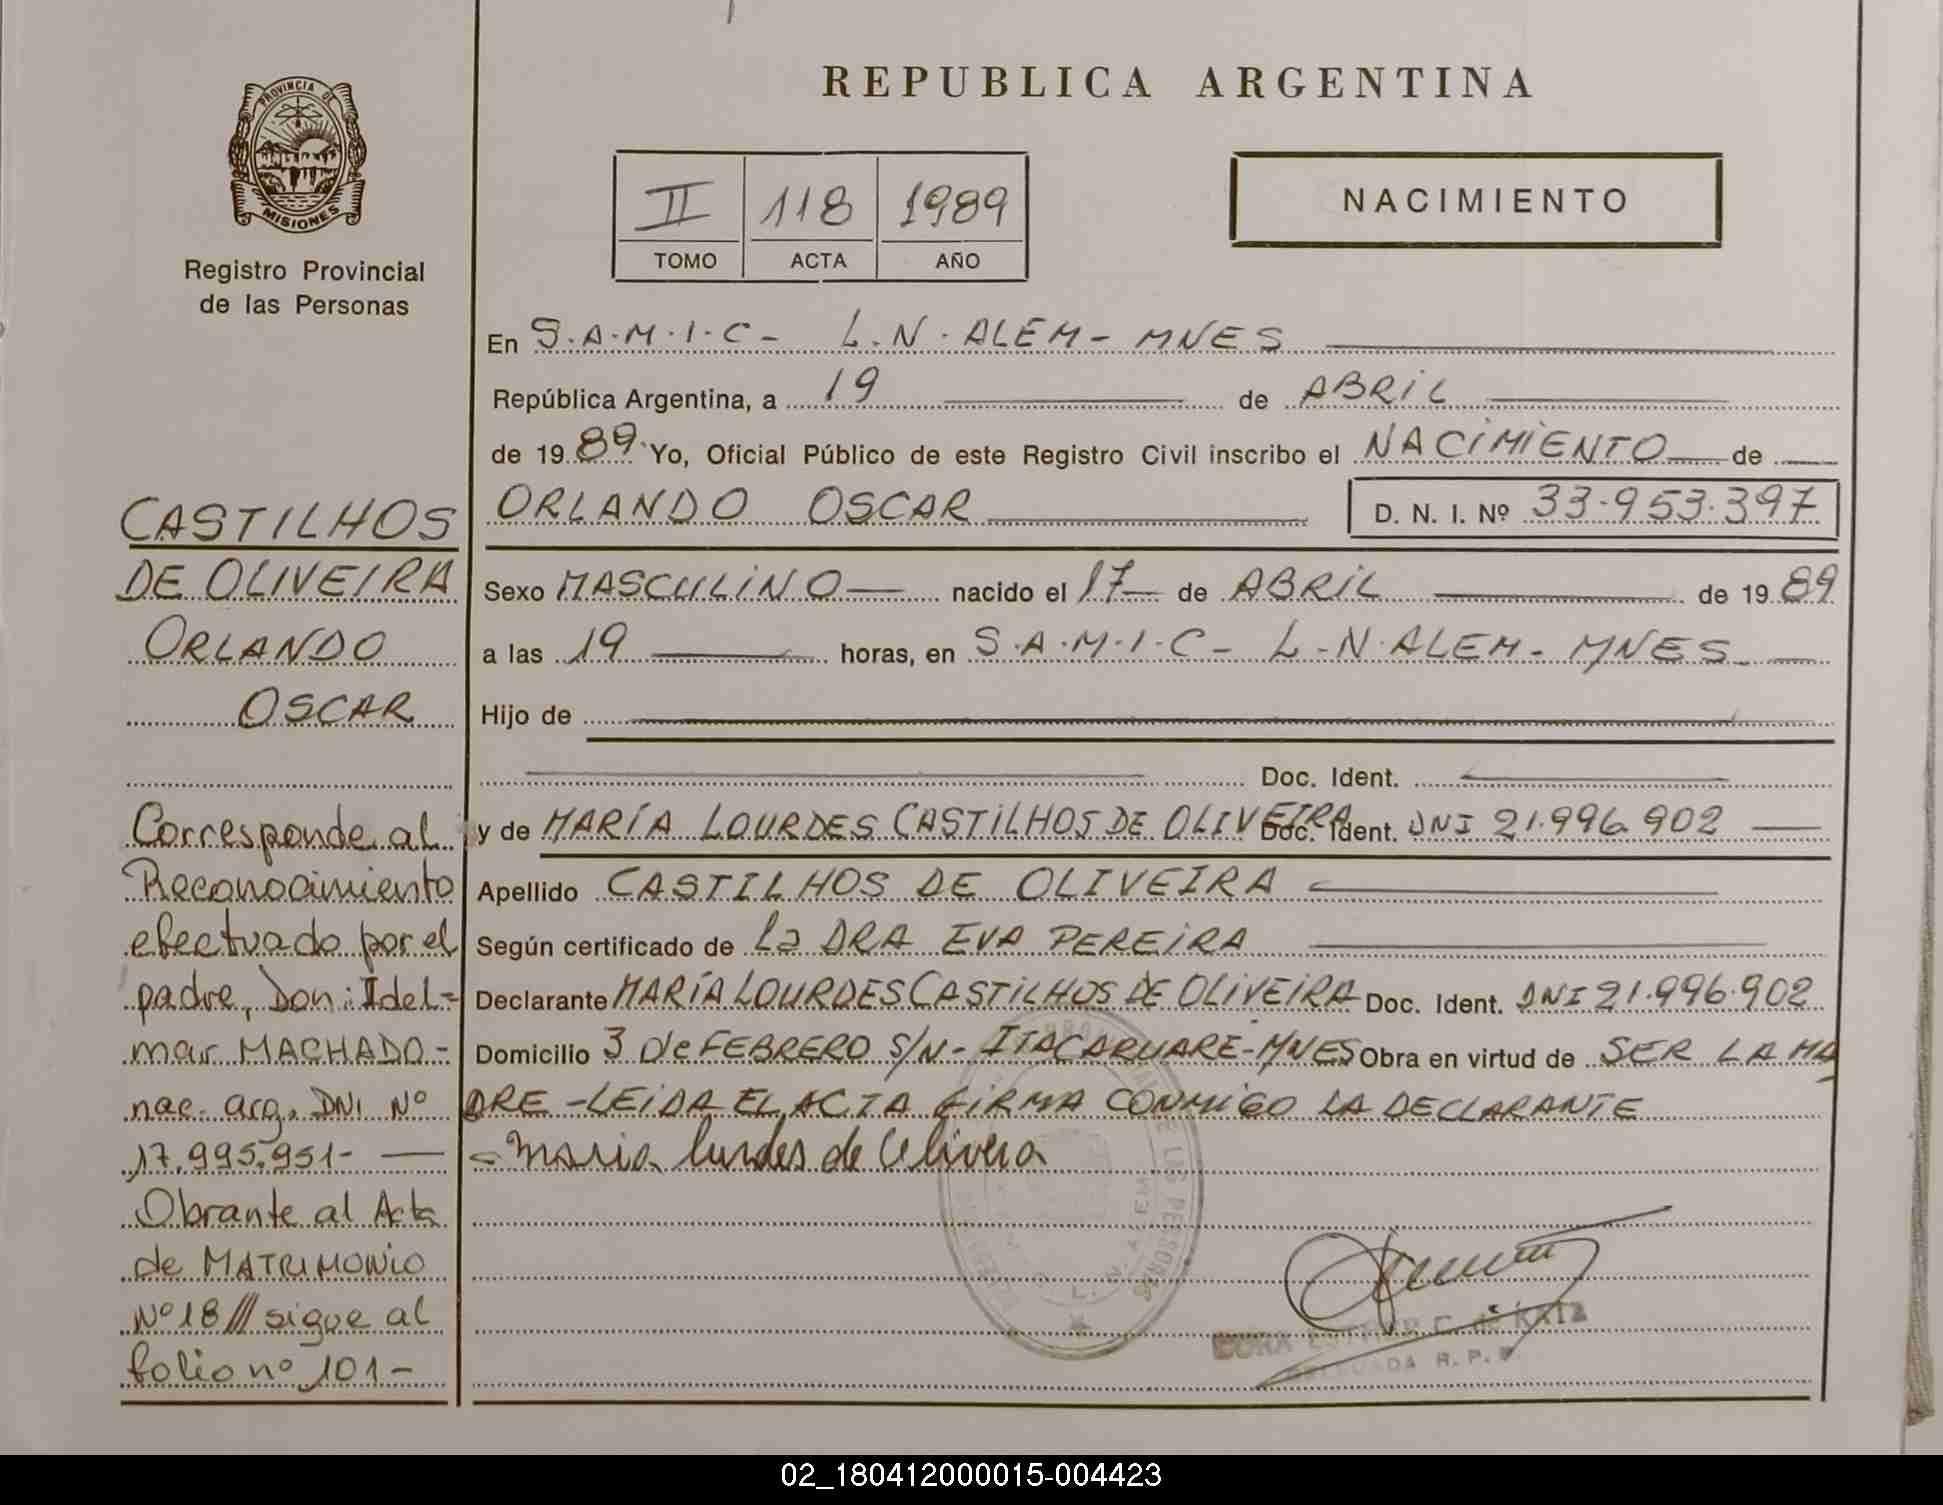 REPUBLICA ARGENTINA
PROVINCIA DE
MISIONES
Registro Provincial
de las Personas
II 118 1989
TOMO ACTA AÑO
NACIMIENTO
En S.A.M.I.C- L.N.ALEM- MNES
República Argentina, a 19 de ABRIL
de 1989 Yo, Oficial Público de este Registro Civil inscribo el NACIMIENTO de
ORLANDO OSCAR D. N. I. Nº 33.953.397
Sexo MASCULINO nacido el 17 de ABRIL de 1989
a las 19 horas, en S.A.M.I.C- L-N.ALEM- MNES-
Hijo de
Doc. Ident.
y de MARÍA LOURDES CASTILHOS DE OLIVEIRA Doc. Ident. DNI 21.996.902
Apellido CASTILHOS DE OLIVEIRA
Según certificado de la DRA EVA PEREIRA
Declarante MARÍA LOURDES CASTILHOS DE OLIVEIRA Doc. Ident. DNI 21.996.902
Domicilio 3 de FEBRERO S/N- ITACARUARE-MNES Obra en virtud de SER LA MA
DRE -LEIDA EL ACTA FIRMA CONMIGO LA DECLARANTE
- Maria lurdes de Olivera
CASTILHOS
DE OLIVEIRA
ORLANDO
OSCAR
Corresponde al
Reconocimiento
efectuado por el
padre, Don: Idel=
mar MACHADO-
nac. arg. DNI Nº
17.995.951-
Obrante al Acta
de MATRIMONIO
Nº18/// sigue al
folio nº 101-
LAS PERSONAS
L. N. ALEM
C. de
R. P. P.
02_180412000015-004423